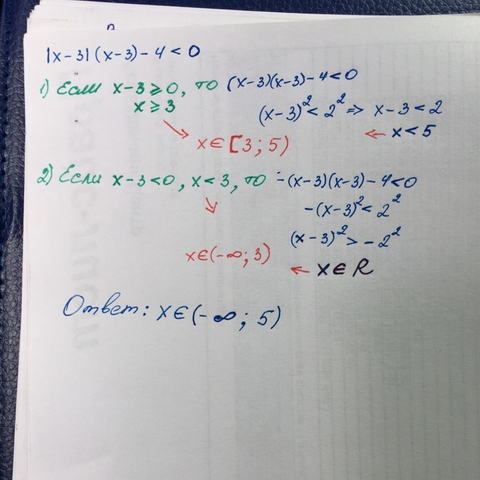 |x-3|(x-3)-4<0
1) Если x-3≥0, то (x-3)(x-3)-4<0
x≥3 (x-3)²<2² ⇒ x-3<2
x∈[3; 5) ← x<5
2) Если x-3<0, x<3, то -(x-3)(x-3)-4<0
-(x-3)²<2²
(x-3)²>-2²
x∈(-∞; 3) ← x∈R
Ответ: x∈(-∞; 5)